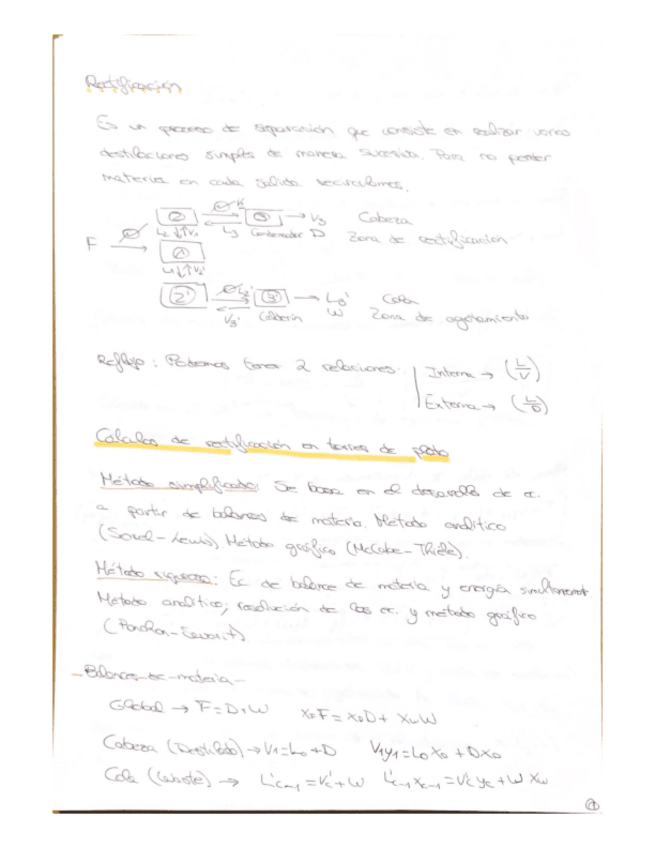 Rectificación
Es un proceso de separación que consiste en realizar varias
destilaciones simples de manera sucesiva. Para no perder
materia en cada salida recirculamos.
2 3 → V3 Cabeza
L2 ↓↑ V1 L3 Condensador D Zona de rectificación
F → 1
L1 ↓↑ V2'
2' L2' 3' → L3' Cola
V3' Calderín W Zona de agotamiento
Reflujo: Podemos tener 2 relaciones: Interna → (L/V)
Externa → (L/D)
Cálculos de rectificación en torres de plato
Método simplificado: Se basa en el desarrollo de ec.
a partir de balances de materia. Método analítico
(Sorel-Lewis). Método gráfico (McCabe-Thiele).
Método riguroso: Ec de balance de materia y energía simultáneament
Método analítico; resolución de las ec. y método gráfico
(Ponchon-Savarit).
- Balances de materia -
Global → F=D+W xFF = xDD + xWW
Cabeza (Destilado) → V1=L0+D V1y1=L0x0 + DxD
Cola (Waste) → L'c-1=V'c+W L'c-1xc-1=V'cyc+WxW
1